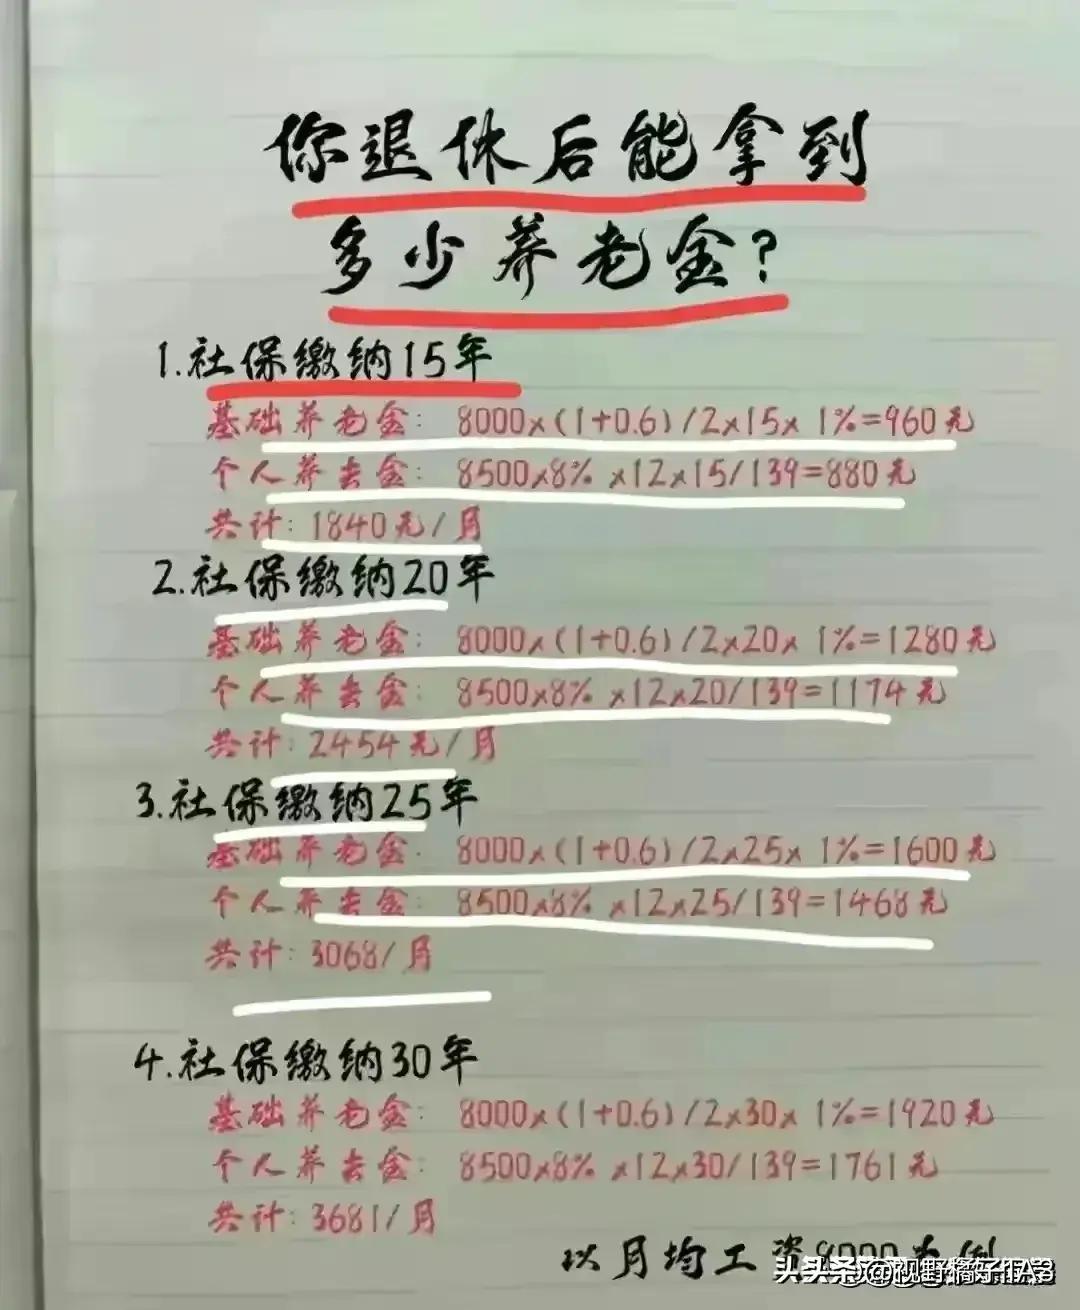 你退休后能拿到
多少养老金?
1.社保缴纳15年
基础养老金: 8000×(1+0.6)/2×15× 1%=960元
个人养老金: 8500×8% ×12×15/139=880元
共计: 1840元/月
2.社保缴纳20年
基础养老金: 8000×(1+0.6)/2×20× 1%=1280元
个人养老金: 8500×8% ×12×20/139=1174元
共计: 2454元/月
3.社保缴纳25年
基础养老金: 8000×(1+0.6)/2×25× 1%=1600元
个人养老金: 8500×8% ×12×25/139=1468元
共计: 3068/月
4.社保缴纳30年
基础养老金: 8000×(1+0.6)/2×30× 1%=1920元
个人养老金: 8500×8% ×12×30/139=1761元
共计: 3681/月
以月均工资8000为例
头条 @视野橘子